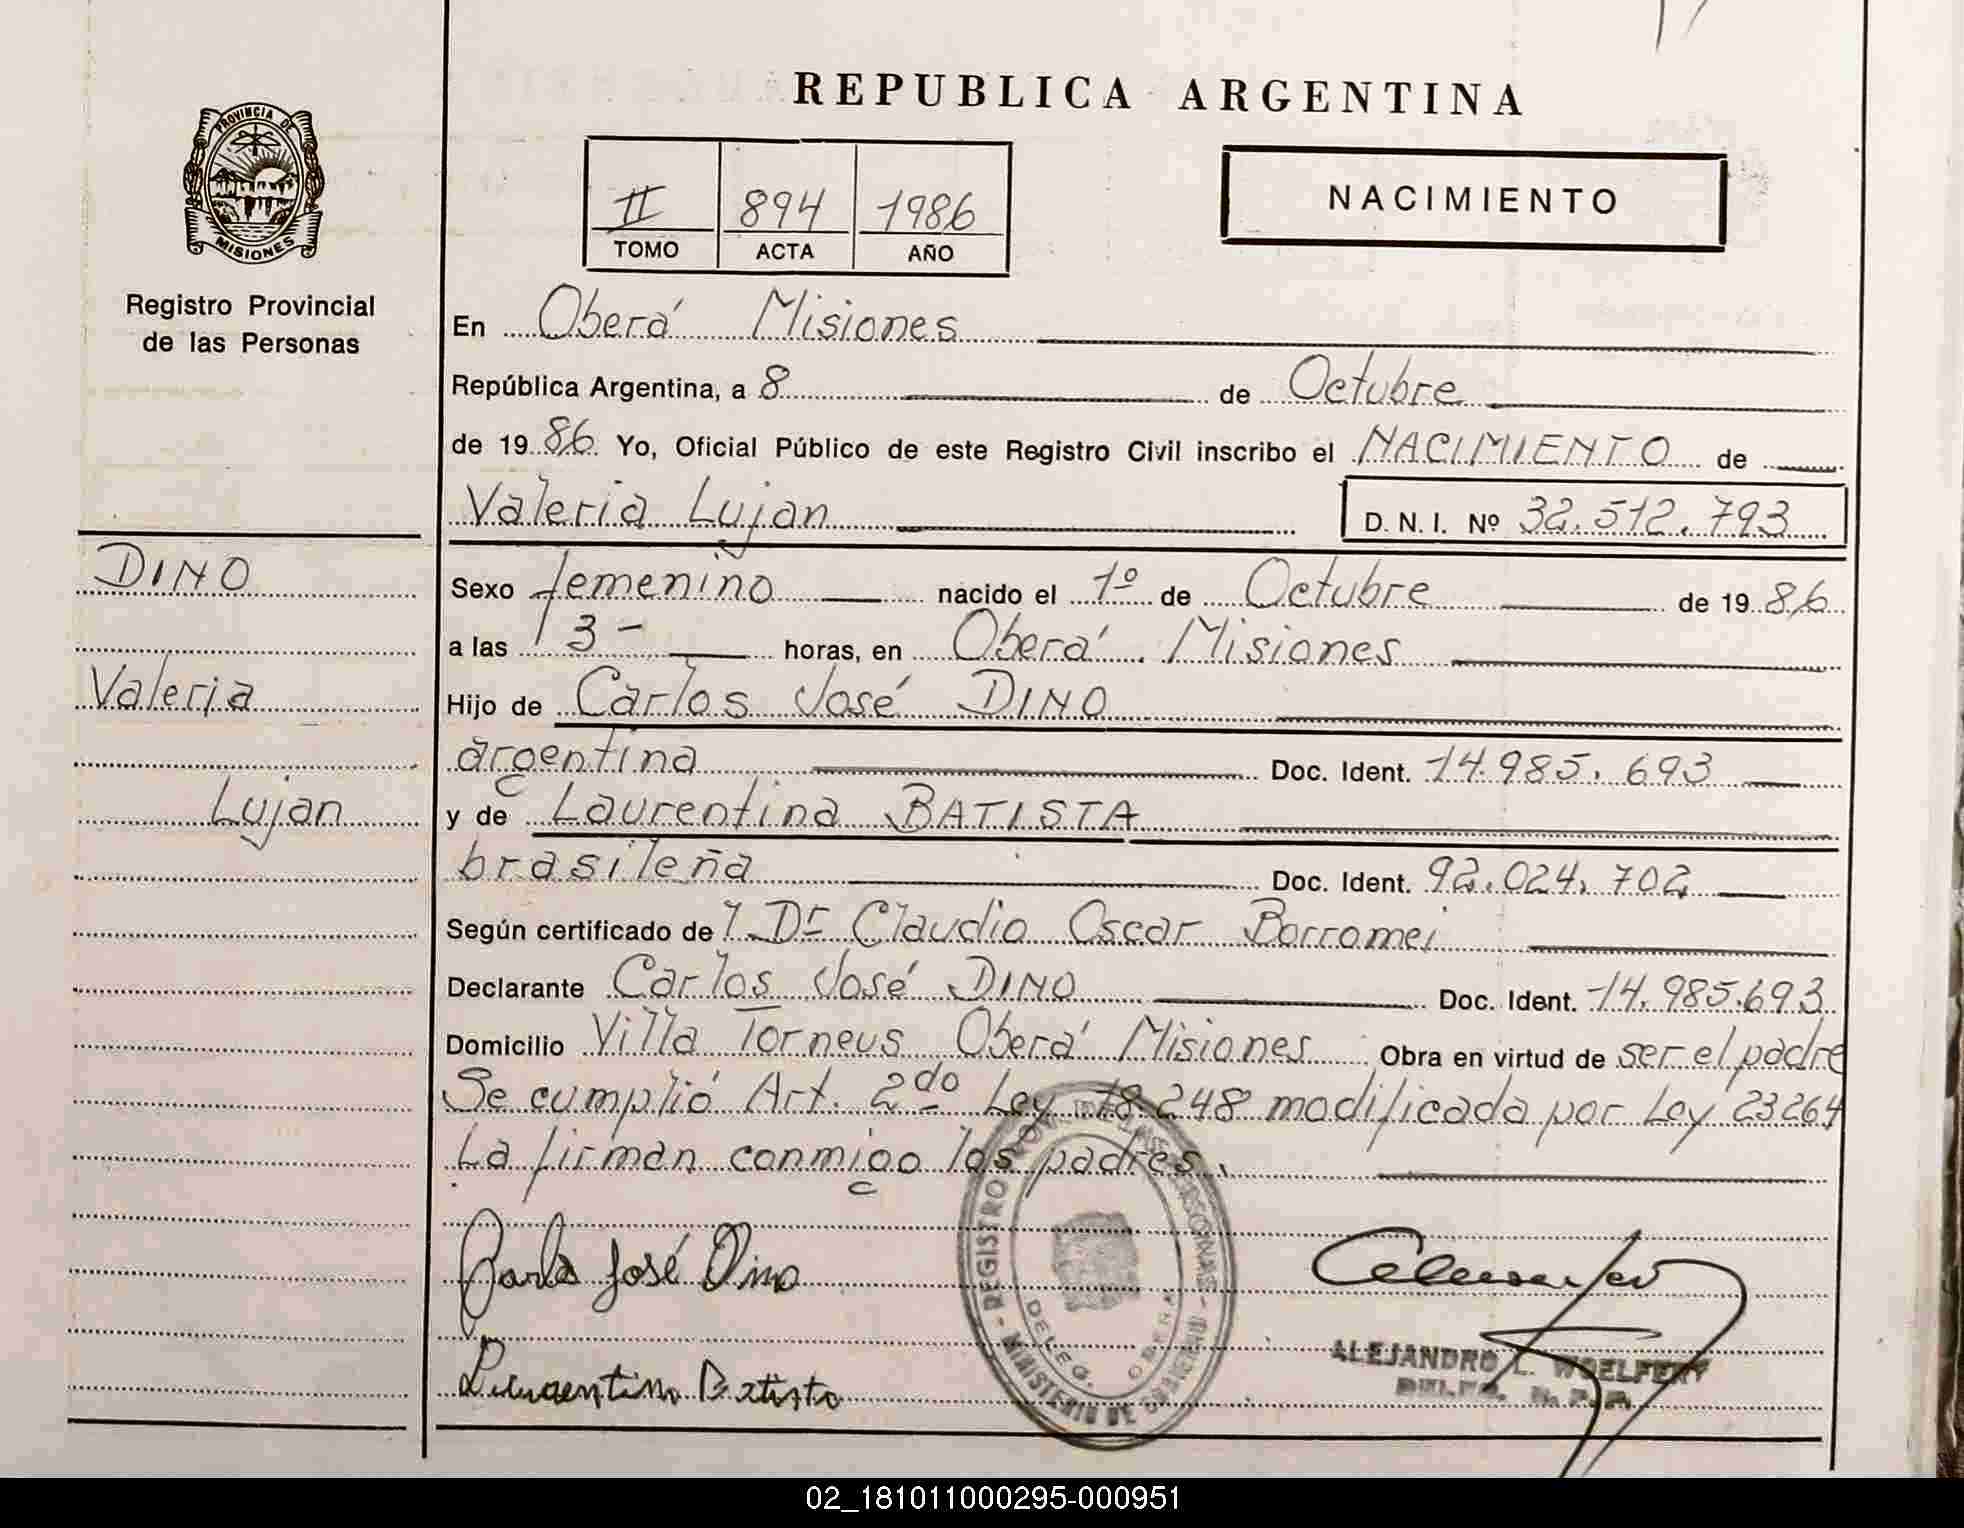 REPUBLICA ARGENTINA
PROVINCIA DE
MISIONES
Registro Provincial
de las Personas
II 894 1986
TOMO ACTA AÑO
NACIMIENTO
En Oberá Misiones
República Argentina, a 8 de Octubre
de 1986 Yo, Oficial Público de este Registro Civil inscribo el NACIMIENTO de
Valeria Lujan D. N. I. Nº 32.512.793
DINO
Valeria
Lujan
Sexo femenino nacido el 1º de Octubre de 1986
a las 13- horas, en Oberá Misiones
Hijo de Carlos José DINO
argentina Doc. Ident. 14.985.693
y de Laurentina BATISTA
brasileña Doc. Ident. 92.024.702
Según certificado de Dr Claudio Oscar Borromei
Declarante Carlos José DINO Doc. Ident. 14.985.693
Domicilio Villa Torneus Oberá Misiones Obra en virtud de ser el padre
Se cumplió Art. 2do Ley 18.248 modificada por Ley 23264
La firman conmigo los padres.
Carlos José Dino
Laurentina Batista
REGISTRO PROVINCIAL DE LAS PERSONAS - MINISTERIO DE GOBIERNO -
DELEG. OBERA
ALEJANDRO L. WOELFERT
02_181011000295-000951